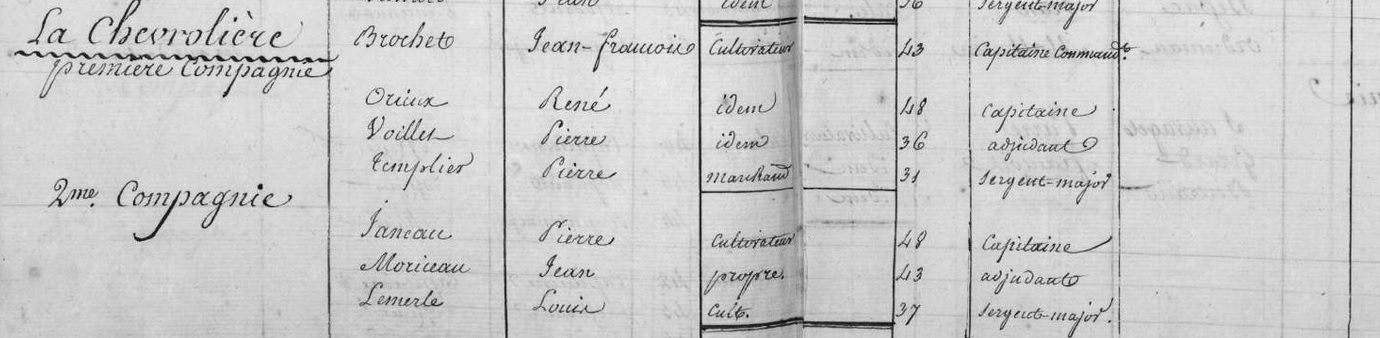 Jean idem 36 Sergent-major
La Chevrolière Brochet Jean-francois Cultivateur 43 Capitaine Command.t
première Compagnie
Orieux René idem 48 Capitaine
Voillet Pierre idem 36 adjudant
Templier Pierre marchand 31 Sergent-major
2me. Compagnie
Janeau Pierre Cultivateur 48 Capitaine
Moriceau Jean propre. 43 adjudant
Lemerle Louis Cult. 37 Sergent-major.